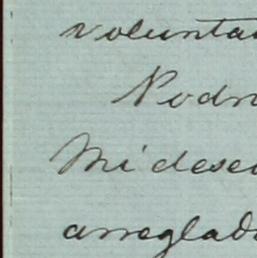 volunta
Podr
Mi dese
arreglad